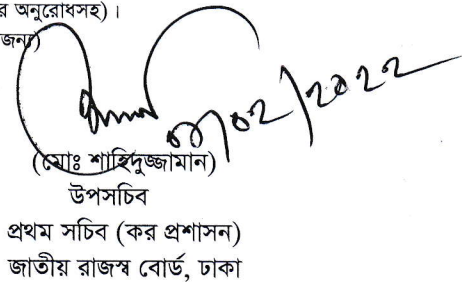 র অনুরোধসহ)।
জন্য)
/০২/২০২২
(মোঃ শাহিদুজ্জামান)
উপসচিব
প্রথম সচিব (কর প্রশাসন)
জাতীয় রাজস্ব বোর্ড, ঢাকা